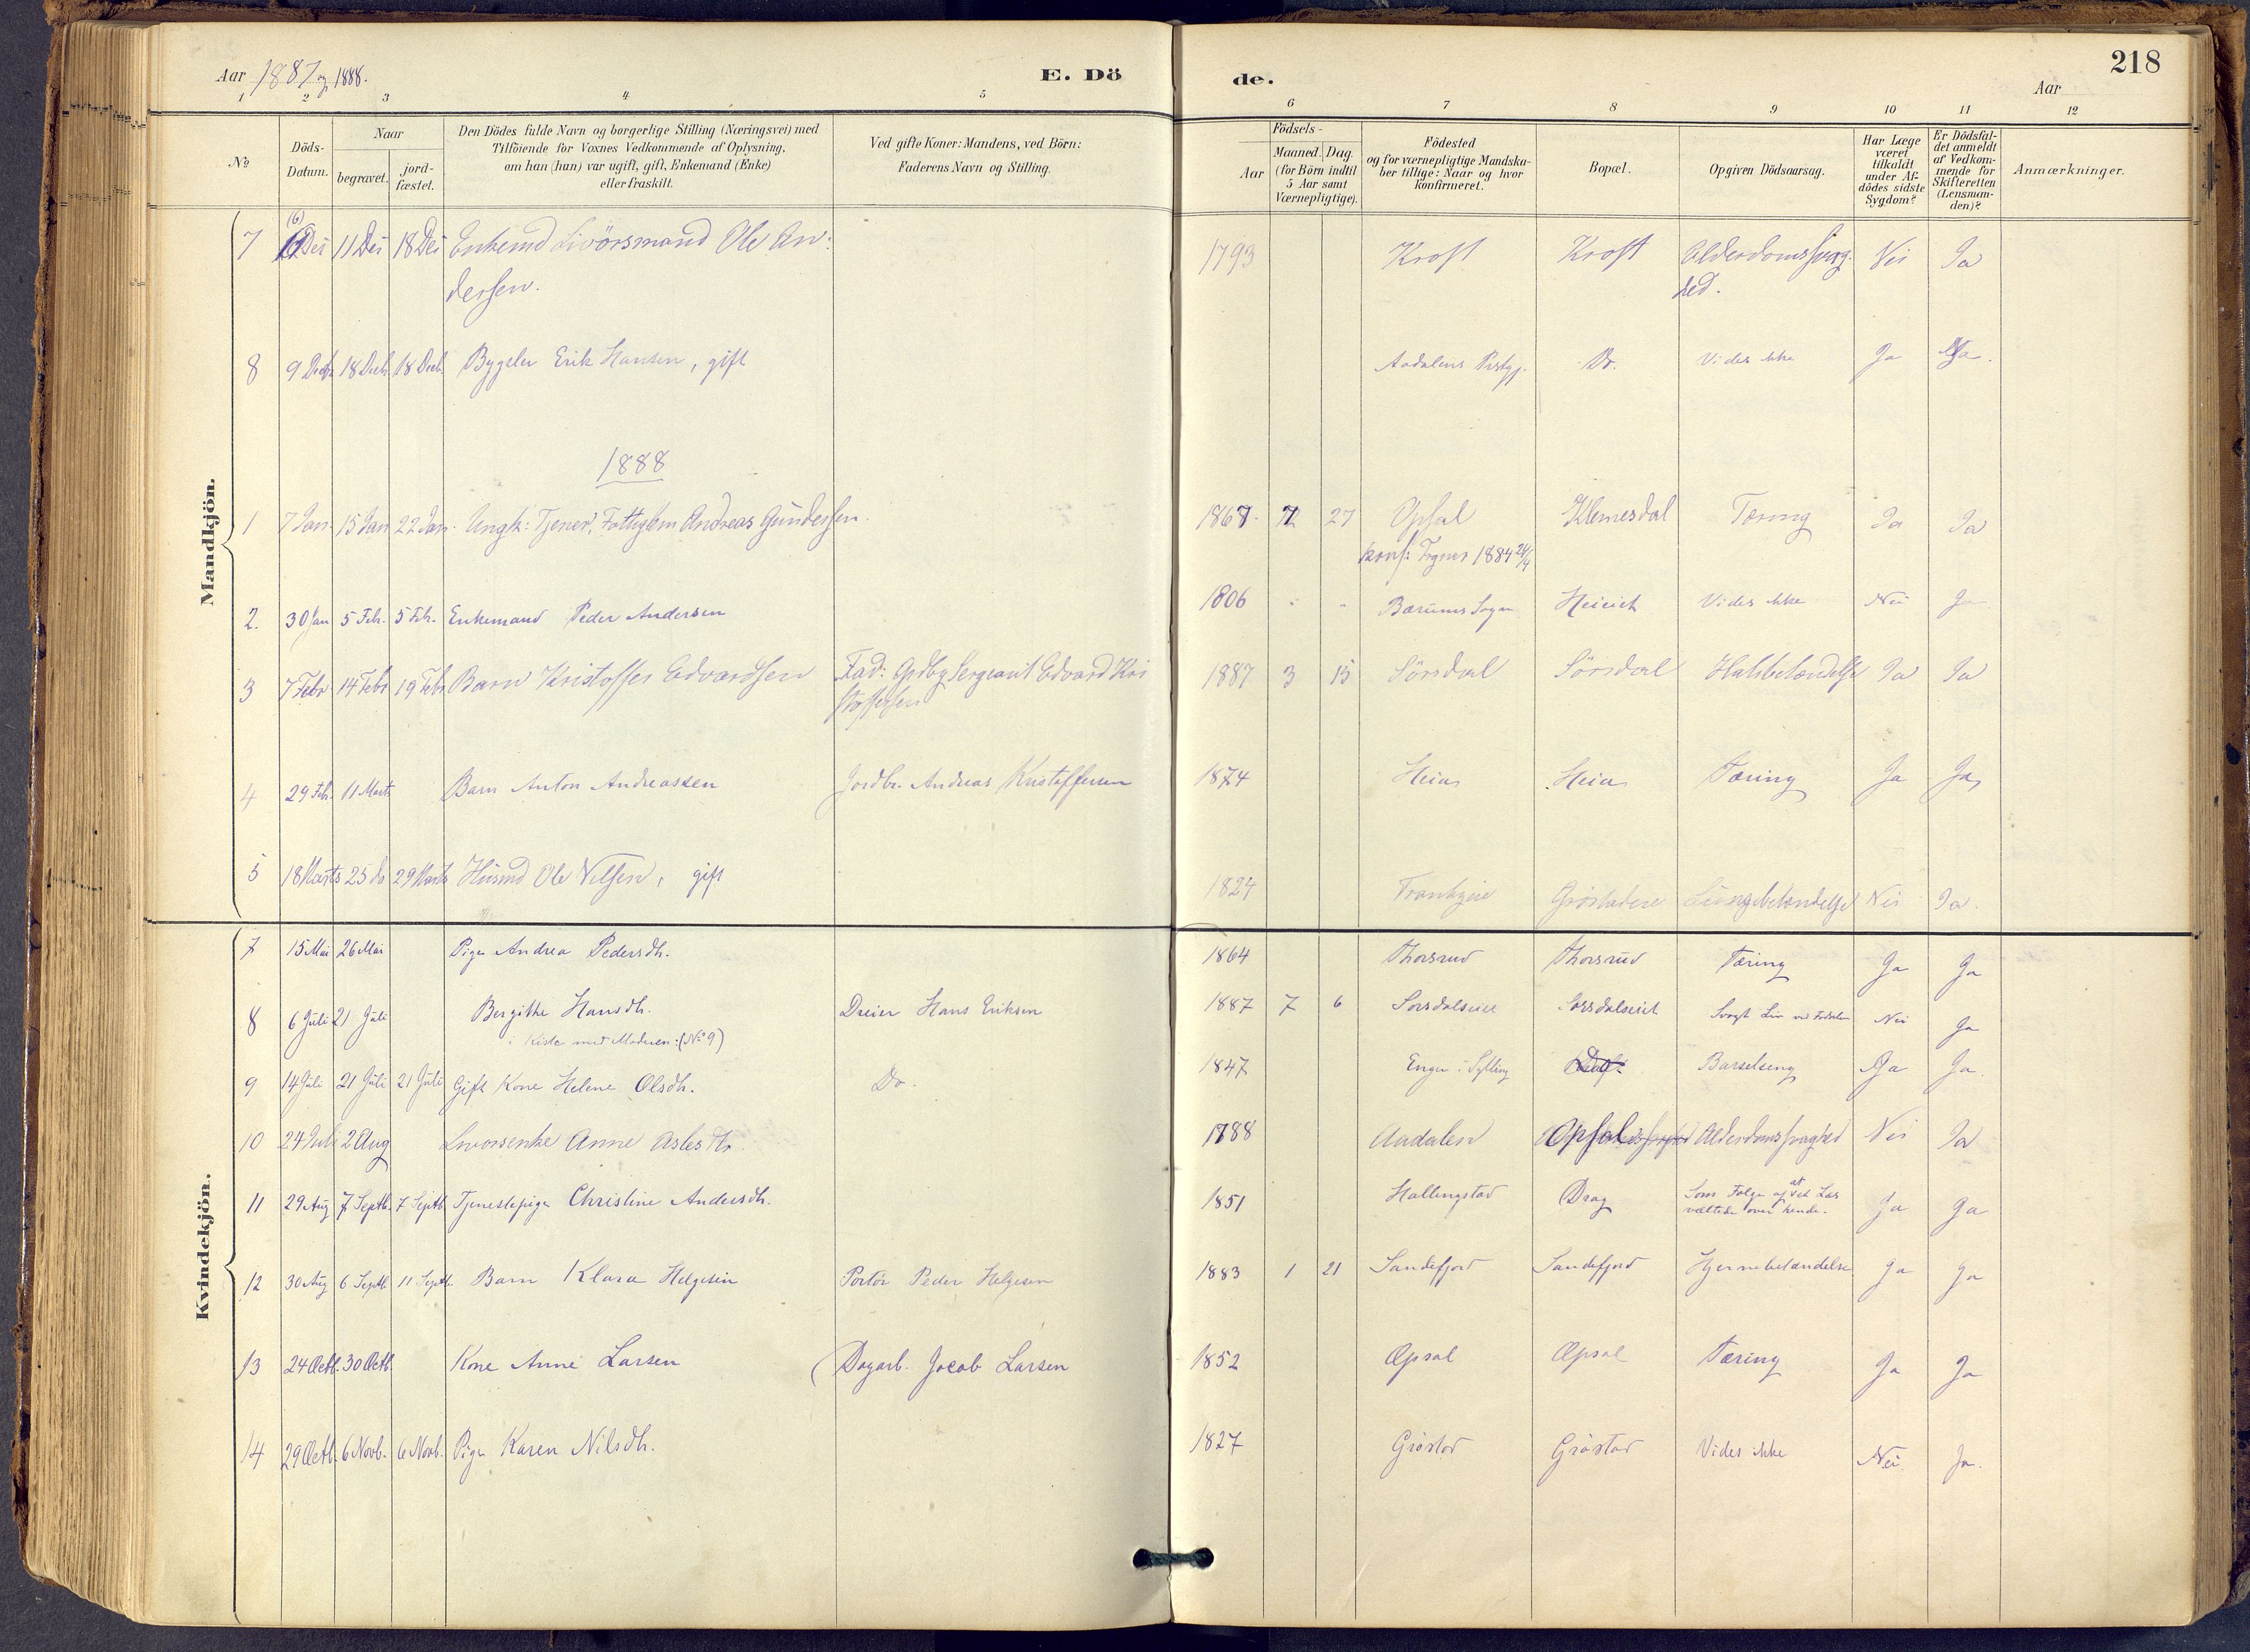 Aar 1887 og 1888.
E. Dö
de.
218
Aar
1 2 3 4 5 6 7 8 9 10 11 12
No
Döds-
Datum.
Naar
begravet.
jord-
fæstet.
Den Dödes fulde Navn og borgerlige Stilling (Næringsvei) med
Tilföiende for Voxnes Vedkommende af Oplysning,
om han (hun) var ugift, gift, Enkemand (Enke)
eller fraskilt.
Ved gifte Koner: Mandens, ved Börn:
Faderens Navn og Stilling.
Födsels-
Aar
Maaned. Dag.
(for Börn indtil
5 Aar samt
Værnepligtige).
Födested
og for værnepligtige Mandska-
ber tillige: Naar og hvor
konfirmeret.
Bopæl.
Opgiven Dödsaarsag.
Har Læge
været
tilkaldt
under Af-
dödes sidste
Sygdom?
Er Dödsfal-
det anmeldt
af Vedkom-
mende for
Skifteretten
(Lensman-
den)?
Anmærkninger.
Mandkjön.
(6)
7 Des 11 Des 18 Des Enkemd Livörsmand Ole An: 1793 Kroft Kroft Alderdomssvag- Nei Ja
dersen. hed.
8 9 Decb. 18 Decb. 18 Decb. Bygsler Erik Hansen, gift Aadalens Prstgj. Do. Vides ikke Ja Ja.
1888
1 7 Jan. 15 Jan 22 Jan. Ungk: Tjener, Fattiglem Andreas Gundersen. 1867 12 27 Opsal Klemesdal Tæring Ja Ja
konf: Tryner 1884
2. 30 Jan 5 Feb. 5 Feb. Enkemand Peder Andersen 1806 Bærums Sogn Heieich Vides ikke Nei Ja
3 7 Febr 14 Febr 19 Febr Barn Kristoffer Edvardsen Fad: Grdbg Sergeant Edvard Kri 1887 3 15 Sörsdal Sörsdal Halsbetændelse Ja Ja
stoffersen
4 29 Feb. 11 Marts Barn Anton Andreassen Jordbr. Andreas Kristoffersen 1874 Heia Heia Tæring Ja Ja
5 18 Marts 25 do 29 Marts Husmd Ole Nilsen, gift 1824 Tranbyeie Gröstadeie Lungebetændelse Nei Ja.
Kvindekjön.
7 15 Mai 26 Mai Pige Andrea Pedersdh. 1864 Thorsrud Thorsrud Tæring Ja Ja
8 6 Juli 21 Juli Bergithe Hansdh. Dreier Hans Eriksen 1887 7 6 Sorsdalseiet Sorsdalseiet Svagt Liv ved Fødselen Nei Ja
i Kiste med Moderen: (No 9)
9 14 Juli 21 Juli 21 Juli Gift Kone Helene Olsdh. Do. 1847 Enger i Sylling Barselseng Ja Ja.
10 24 Juli 2 Aug Livorsenke Anne Aslesdtr. 1788 Aadalen Opsal Alderdomssvaghed Nei Ja
11 29 Aug 7 Septb. 7 Septb. Tjenestepige Christine Andersdh. 1851 Hallingstad Drag Som Følge af at Ved Læs Ja Ja
væltede over hende.
12 30 Aug 6 Septb. 11 Septb. Barn Klara Helgesen Portör Peder Helgesen 1883 1 21 Sandefjord Sandefjord Hjernebetændelse Ja Ja
13 24 Octb. 30 Octb. Kone Anne Larsen Dagarb. Jacob Larsen 1852 Opsal Opsal Tæring Ja Ja
14 29 Octb. 6 Novb. 6 Novb. Pige Karen Nilsdh. 1827 Gröstad Gröstad Vides ikke Nei. Ja.